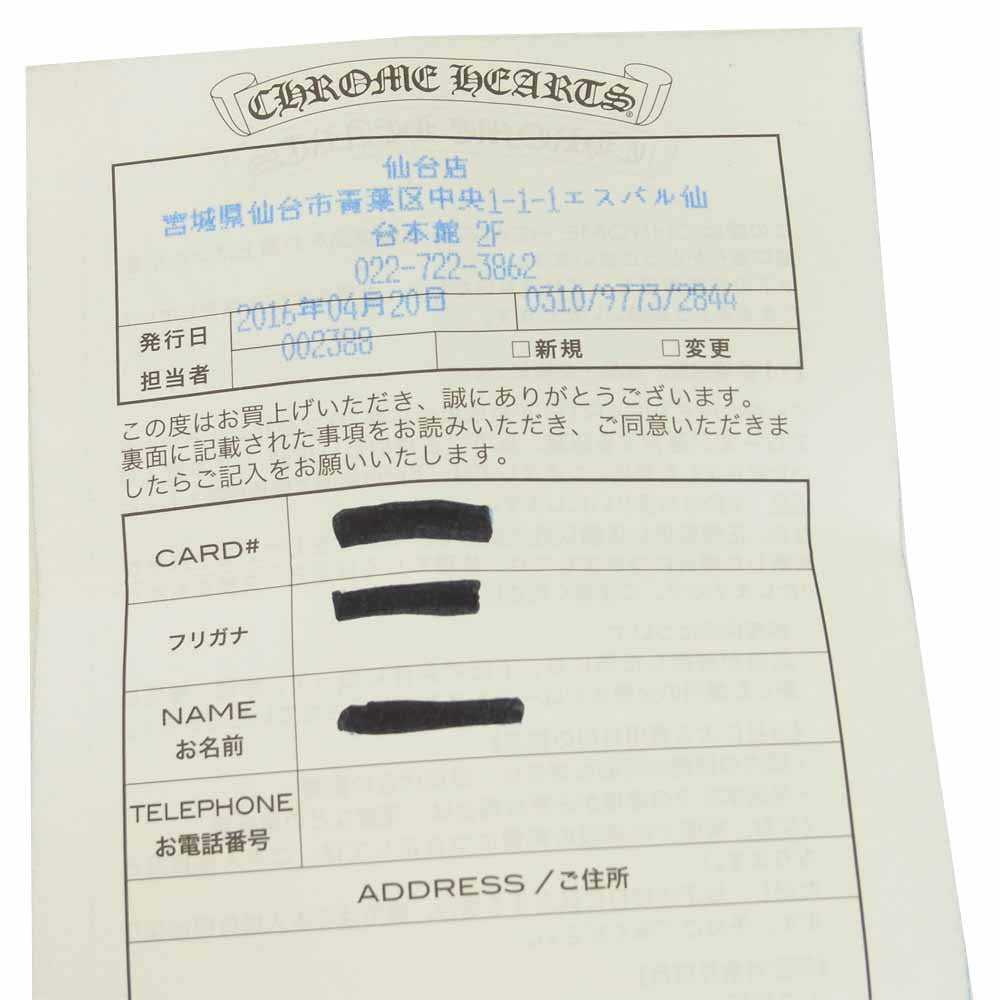 CHROME HEARTS®
仙台店
宮城県仙台市青葉区中央1-1-1エスパル仙
台本館 2F
022-722-3862
発行日 2016年04月20日 0310/9773/2844
担当者 002388 □新規 □変更
この度はお買上げいただき、誠にありがとうございます。
裏面に記載された事項をお読みいただき、ご同意いただきま
したらご記入をお願いいたします。
CARD#
フリガナ
NAME
お名前
TELEPHONE
お電話番号
ADDRESS /ご住所